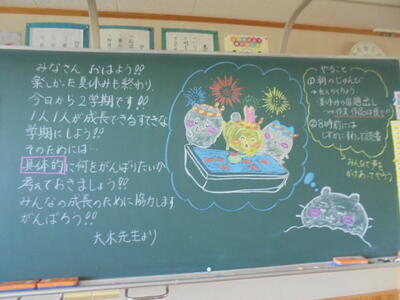 みなさん おはよう!!
楽しかった夏休みも終わり、
今日から2学期です!!
1人1人が成長できるすてきな
学期にしよう!!
そのためには…
具体的に何をがんばりたいか
考えておきましょう!!
みんなの成長のために協力します
がんばろう!!
大木先生より
やること
①朝のじゅんび
→れんらくちょう
夏休みの宿題出し
②8時前には
しずかにすわって読書
みんなで声を
かけあってやろう